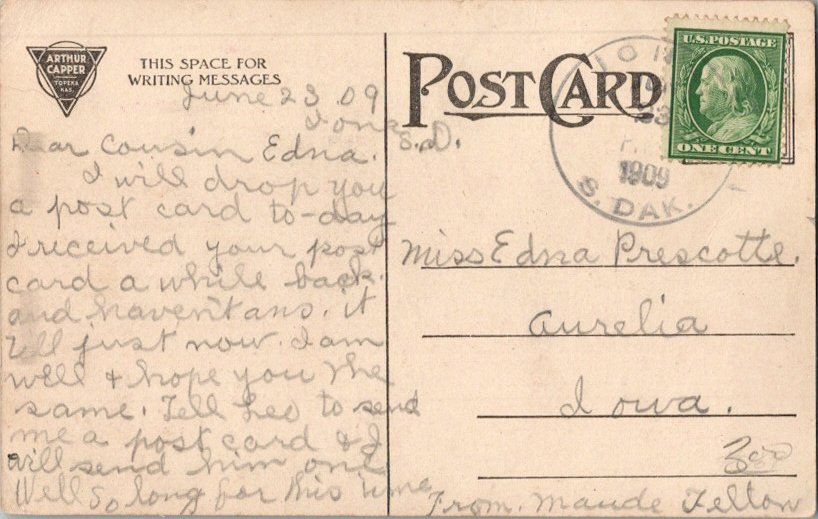 ARTHUR
CAPPER
TOPEKA
KAS.
THIS SPACE FOR
WRITING MESSAGES
June 23 09
Iona
S.D.
Dear Cousin Edna.
I will drop you
a post card to-day
I received your post
card a while back.
and haven't ans. it
till just now. I am
well & hope you the
same. Tell Leo to send
me a post card & I
will send him one
Well so long for this time
POST CARD
U.S. POSTAGE
ONE CENT
IO
23
P.M.
1909
S. DAK.
Miss Edna Prescotte.
Aurelia
Iowa.
300
From. Maude Felton